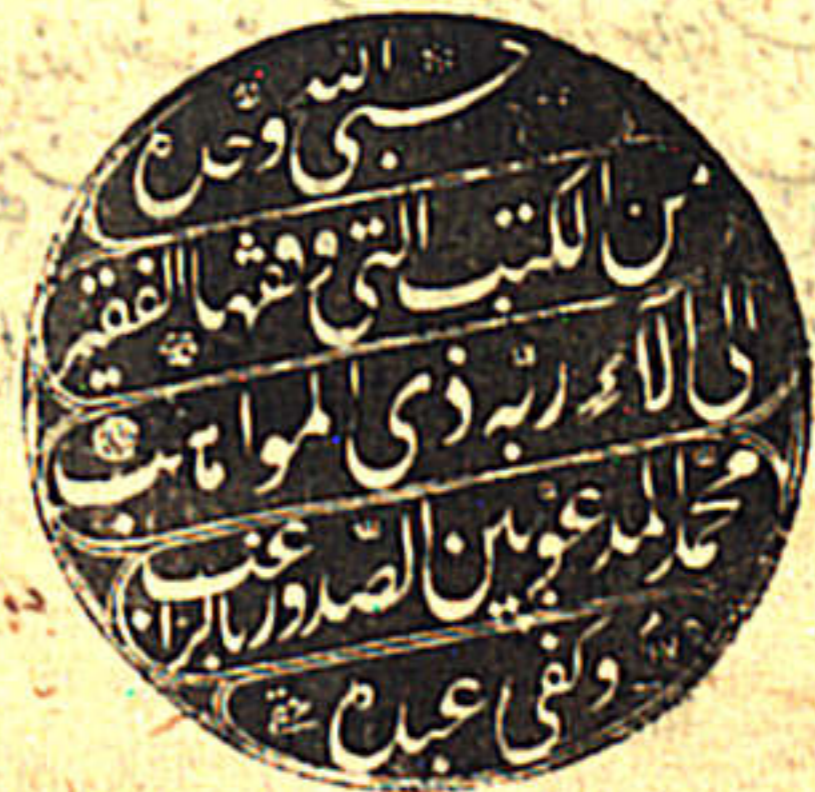 حسبي الله وحده
من الكتب التي وقفها الفقير
الى آلاء ربّه ذي المواهب
محمّد المدعو بين الصّدور بالراغب
وكفى عبده